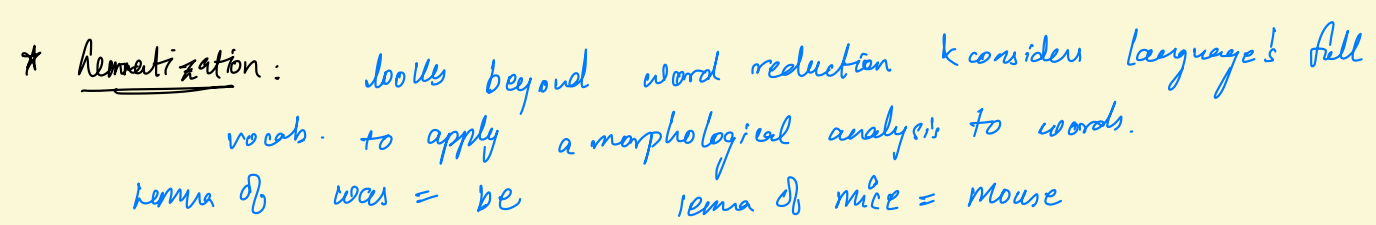 * Lemmatization: looks beyond word reduction & considers language's full
vocab. to apply a morphological analysis to words.
Lemma of was = be lemma of mice = mouse